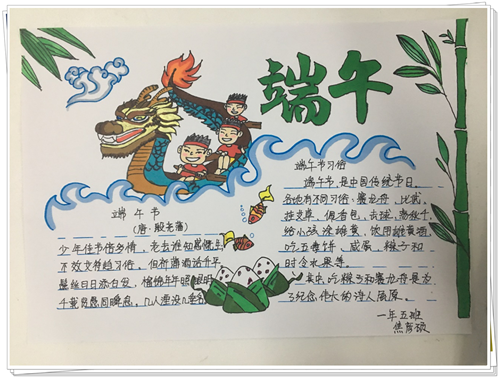 端午
端 午 节
(唐·殷尧藩)
少年佳节倍多情,老去谁知感慨生
不效艾符趋习俗,但祈蒲酒话升平
鬓丝日日添白发,榴锦年年照眼明
千载贤愚同瞬息,几人湮没几
端午节习俗
端午节,是中国传统节日。
各地有不同习俗:赛龙舟、比武、
挂艾草、佩香包、
给小孩涂雄黄、饮用雄黄酒、
吃五毒饼、咸蛋、粽子和
时令水果等。
其中吃粽子和赛龙舟是为
了纪念伟大的诗人屈原。
一年五班
焦